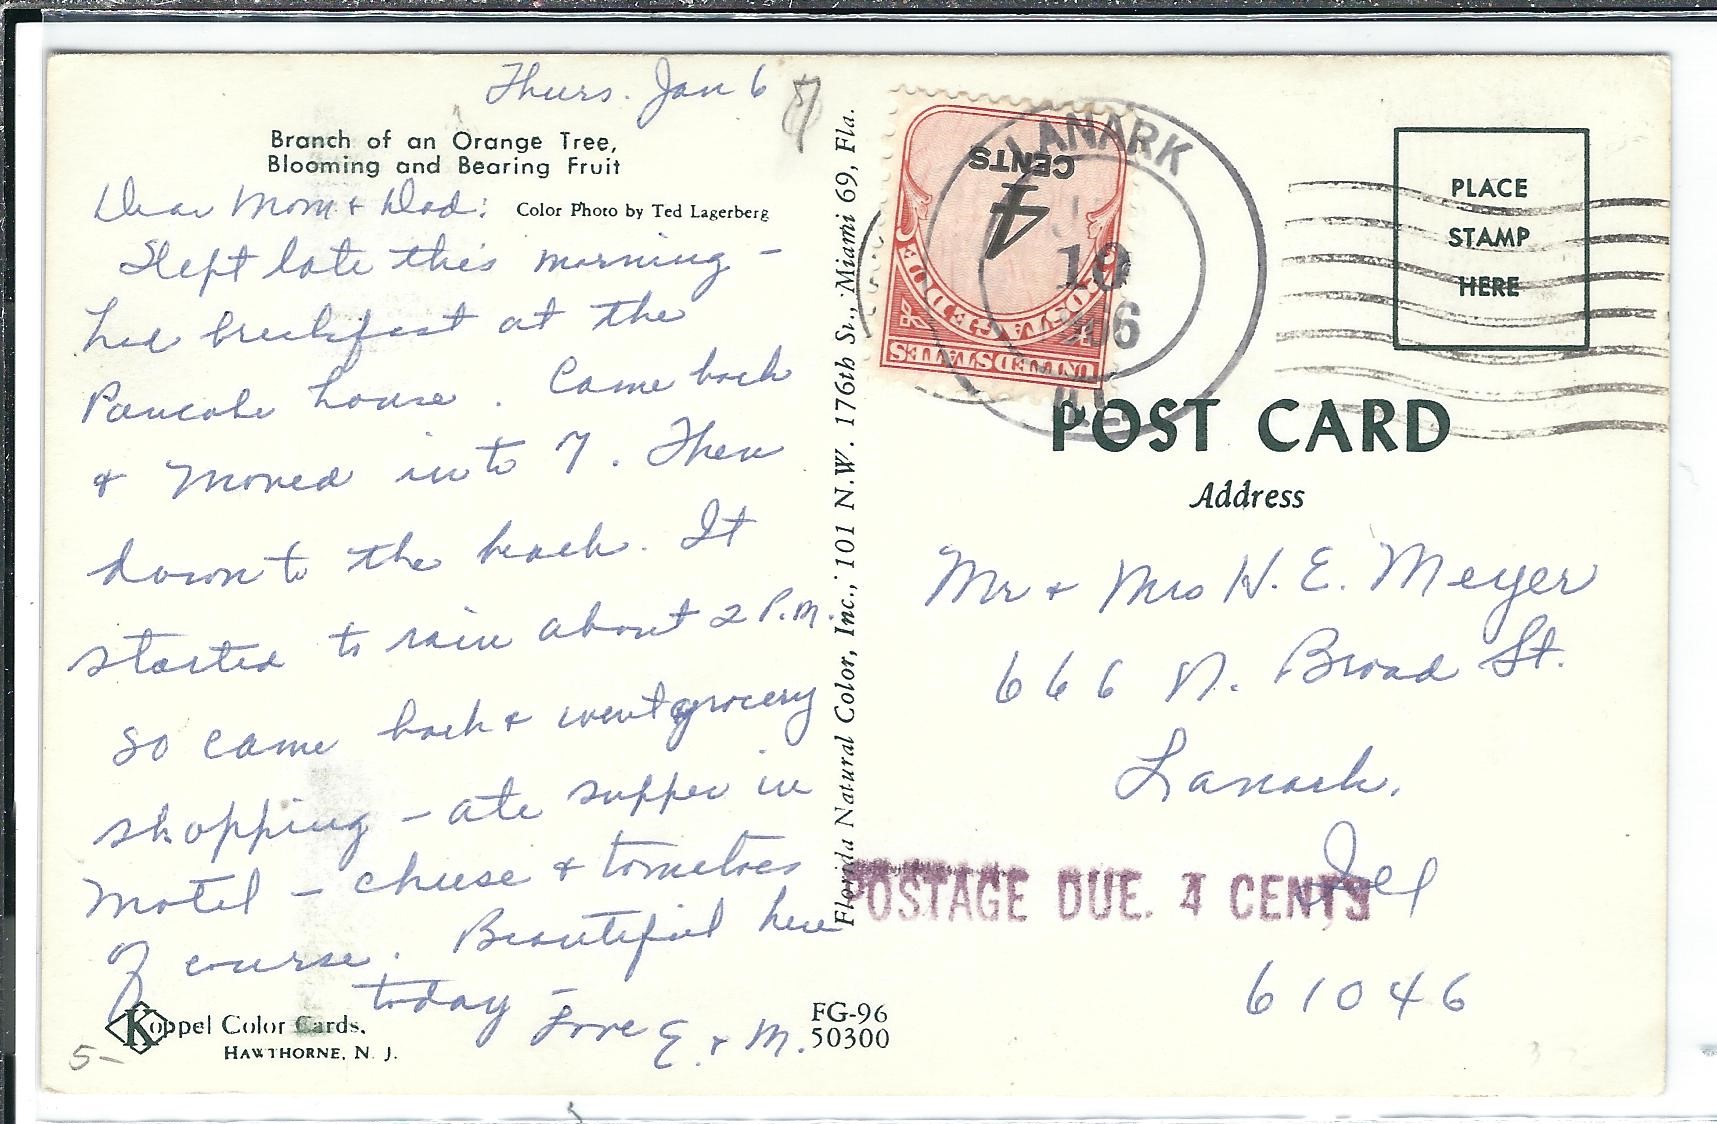 Thurs. Jan 6
Branch of an Orange Tree,
Blooming and Bearing Fruit
Color Photo by Ted Lagerberg
Dear Mom + Dad:
Slept late this morning -
had breakfast at the
Pancake house. Came back
+ moved into 7. Then
down to the beach. It
started to rain about 2 P.M.
so came back + went grocery
shopping - ate supper in
Motel - cheese + tomatoes
of course. Beautiful here
today -
Love E. + M.
Koppel Color Cards,
HAWTHORNE, N. J.
5-
FG-96
50300
Florida Natural Color, Inc., 101 N.W. 176th St., Miami 69, Fla.
LANARK
19
ILL
CENTS
4
POSTAGE DUE
UNITED STATES
PLACE
STAMP
HERE
POST CARD
Address
Mr + Mrs H. E. Meyer
666 N. Broad St.
Lanark,
Ill
POSTAGE DUE. 4 CENTS
61046